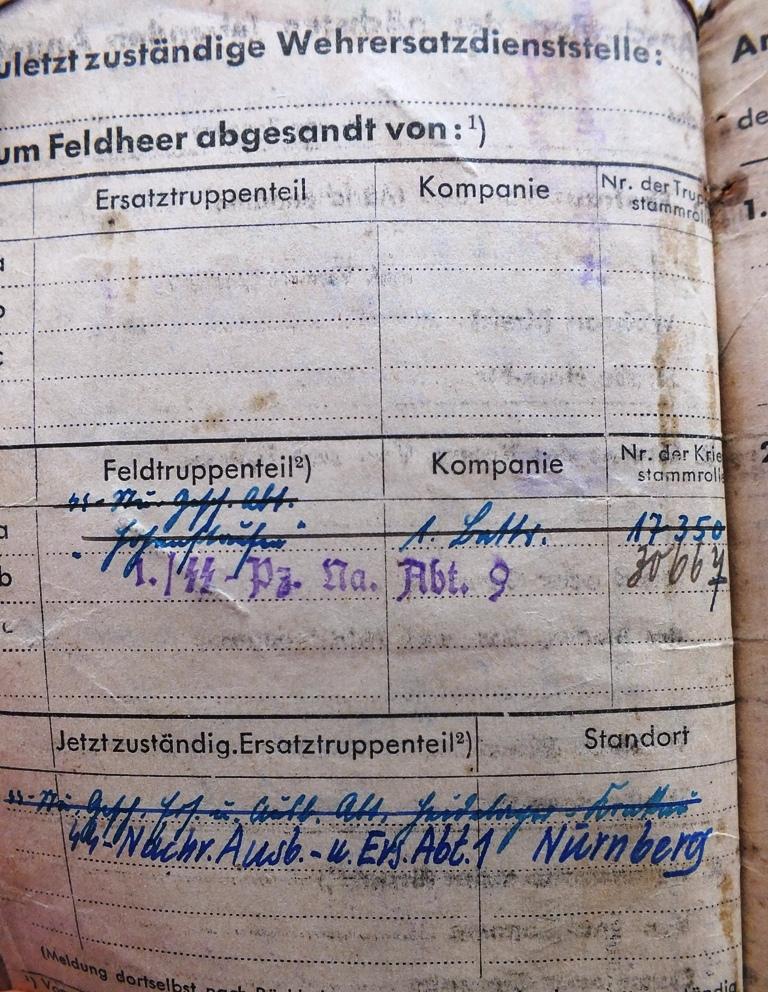 uletzt zuständige Wehrersatzdienststelle:
um Feldheer abgesandt von: ¹)
Ersatztruppenteil Kompanie Nr. der Trup
stammroll
a
b
c
Feldtruppenteil²) Kompanie Nr. der Krie
stammroll
SS-Stu. Gesch. Abt.
a "Hohenstaufen" 1. Battr. 17 350
b 1./SS-Pz. Na. Abt. 9 30667
c
Jetzt zuständig. Ersatztruppenteil²) Standort
SS-Stu. Gesch. Ers. u. Ausb. Abt. Heidelager
SS-Nachr. Ausb.- u. Ers. Abt. 1 Nürnberg
(Meldung dortselbst nach
¹) Vo
An
de
1.
2